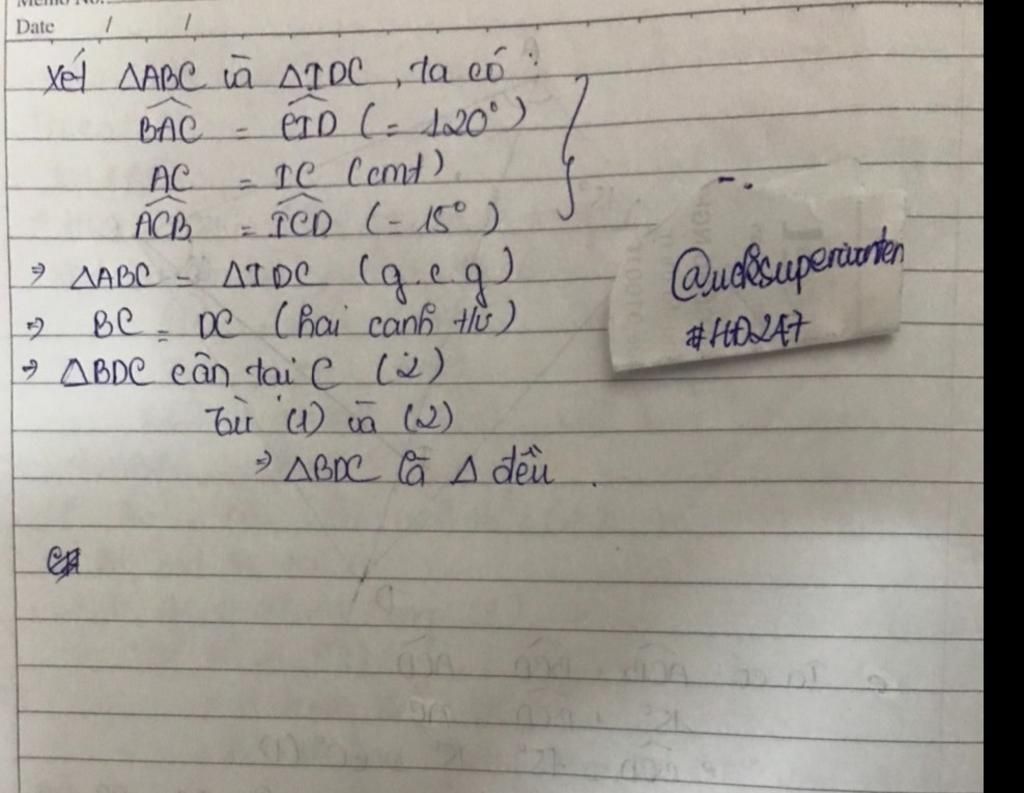 Date / /
Xét △ABC và △IDC, ta có :
BAC = CID (= 120°)
AC = IC (cmt)
ACB = ICD (= 15°)
⇒ △ABC = △IDC (g.c.g)
⇒ BC = DC (hai cạnh t/ư)
⇒ △BDC cân tại C (2)
Từ (1) và (2)
⇒ △BDC là △ đều.
#HD247